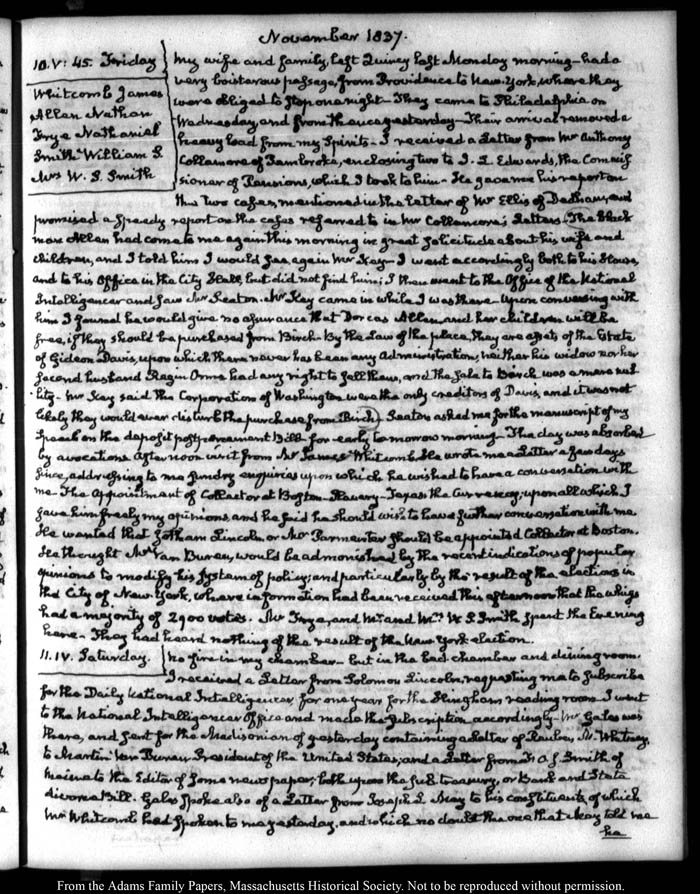 November 1837.
10. V: 45. Friday
Whitcomb James
Allen Nathan
Frye Nathaniel
Smith William S.
Mrs W. S. Smith
My wife and family, left Quincy last Monday morning—had a
very boisterous passage, from Providence to New-York, where they
were obliged to stop one night—They came to Philadelphia on
Wednesday, and from thence yesterday—Their arrival removed a
heavy load from my Spirits—I received a Letter from Mr Anthony
Collamore of Pembroke, enclosing two to J. L. Edwards, the Commis-
sioner of Pensions, which I took to him—He gave me his report on
the two cases, mentioned in the Letter of Mr Ellis of Dedham, and
promised a speedy report on the cases referred to in Mr Collamore's Letters—The black
man Allen had come to me again this morning in great solicitude about his wife and
children, and I told him I would see, again Mr Key—I went accordingly both to his House,
and to his Office in the City Hall, but did not find him; I then went to the Office of the National
Intelligencer and saw Mr Seaton. Mr Key came in while I was there. Upon conversing with
him I found he would give no assurance that Dorcas Allen and her children will be
free, if they should be purchased from Birch—By the Law of the place, they are assets of the Estate
of Gideon Davis, upon which there never has been any Administration; neither his widow nor her
second husband Regin Orme had any right to sell them, and the sale to Birch was a mere nul-
lity—Mr Key said the Corporation of Washington were the only creditors of Davis, and it was not
likely they would ever disturb the purchase from Birch) Seaton asked me for the manuscript of my
Speech on the deposit postponement Bill—for early tomorrow morning—The day was absorbed
by avocations. Afternoon visit from Mr James Whitcomb. He wrote me a Letter a few days
since, addressing to me sundry enquiries upon which he wished to have a conversation with
me—The Appointment of Collector at Boston—Slavery—Texas the Currency, upon all which I
gave him freely my opinions, and he said he should wish to have further conversation with me.
He wanted that Gotham Lincoln or Mr Parmenter should be appointed Collector at Boston.
He thought Mr Van Buren, would be admonished by the recent indications of popular
opinions to modify his system of policy; and particularly by the result of the elections in
the City of New-York, where information had been received this afternoon that the whigs
had a majority of 2900 votes. Mr Frye, and Mr and Mrs W. S. Smith spent the Evening
here—They had heard nothing of the result of the New York election.
11. IV. Saturday.
No fire in my chamber—but in the bed chamber and dining room.
I received a Letter from Solomon Lincoln, requesting me to subscribe
for the Daily National Intelligencer, for one year for the Hingham reading room—I went
to the National Intelligencer Office and made the subscription accordingly—Mr Gales was
there, and sent for the Madisonian of yesterday containing a Letter of Reuben M. Whitney,
to Martin Van Buren President of the United States; and a Letter from F. O. J. Smith of
Maine to the Editor of some newspaper; both upon the sub-treasury, or Bank and State
divorce Bill. Gales spoke also of a Letter from Joseph L. May to his constituents, of which
Mr Whitcomb had spoken to me yesterday, and which no doubt the one that Key told me
he
From the Adams Family Papers, Massachusetts Historical Society. Not to be reproduced without permission.